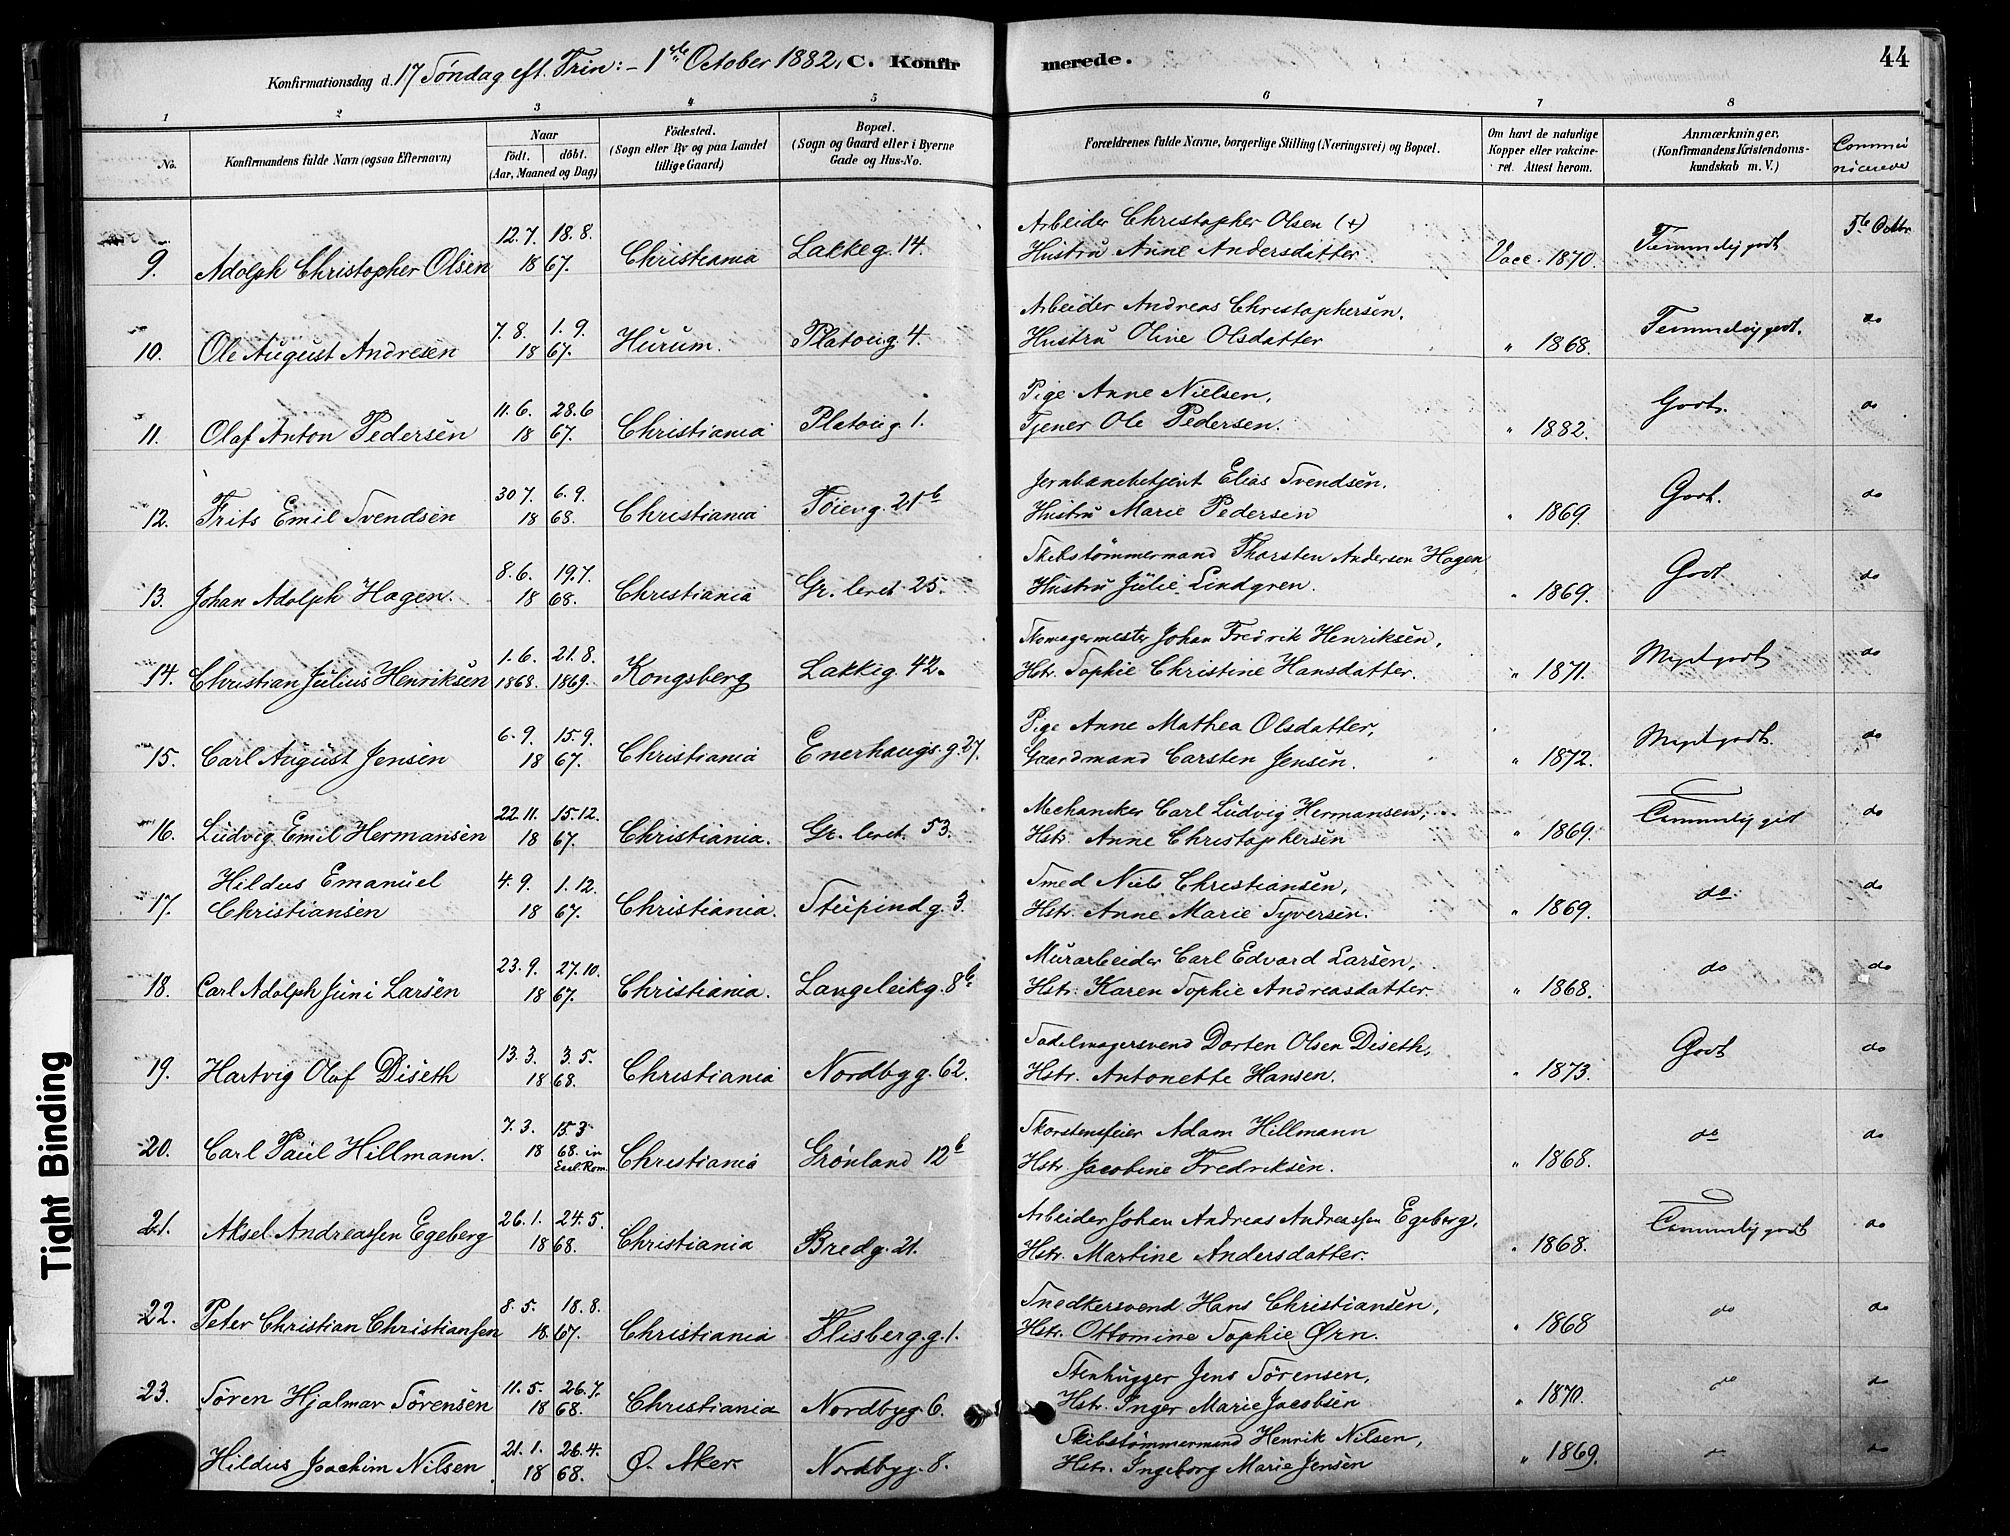 Konfirmationsdag d. 17 Söndag eft. Trin: - 1ste October 1882. C. Konfirmerede. 44
1 2 3 4 5 6 7 8
No. Konfirmandens fulde Navn (ogsaa Efternavn) Naar födt. döbt. (Aar, Maaned og Dag) Födested. (Sogn eller By og paa Landet tillige Gaard) Bopæl. (Sogn og Gaard eller i Byerne Gade og Hus-No. Forældrenes fulde Navne, borgerlige Stilling (Næringsvei) og Bopæl. Om havt de naturlige Kopper eller vakcineret. Attest herom. Anmærkninger. (Konfirmandens Kristendomskundskab m.V.)
9. Adolph Christopher Olsen 12.7. 18.8. 1867. Christiania Lakkeg. 14. Arbeider Christopher Olsen (+)
Hustru Anne Andersdatter Vacc. 1870. Temmelig godt 5te Octbr
10. Ole August Andresen 7.8. 1.9. 1867. Hurum. Platoug. 4. Arbeider Andreas Christophersen,
Hustru Oline Olsdatter " 1868. Temmelig godt. do
11. Olaf Anton Pedersen 11.6. 28.6 1867. Christiania Platoug. 1. Pige Anne Nielsen,
Tjener Ole Pedersen. " 1882. Godt. do
12. Frits Emil Svendsen 30 7. 6.9. 1868. Christiania Töieng. 21b Jernbanebetjent Elias Svendsen.
Hustru Marie Pedersen " 1869. Godt. do
13. Johan Adolph Hagen. 8.6. 19.7. 1868. Christiania Gr. leret. 25. Skibstömmermand Thorsten Andersen Hagen
Hustru Julie Lindgren. " 1869. Godt do
14. Christian Julius Henriksen 1.6. 1868. 21.8. 1869. Kongsberg Lakkeg. 42. Skomagermester Johan Fredrik Henriksen,
Hstr. Sophie Christine Hansdatter. " 1871. Meget godt do
15. Carl August Jensen 6.9. 15.9. 1867. Christiania Enerhaugs.g. 27. Pige Anne Mathea Olsdatter,
Gaardmand Carsten Jensen. " 1872. Meget godt. do
16. Ludvig Emil Hermansen 22 11. 15.12. 1867. Christiania. Gr. leret. 53. Mekaniker Carl Ludvig Hermansen,
Hstr. Anne Christophersen " 1869. Temmelig godt do
17. Hildus Emanuel
Christiansen 4.9. 1.12. 1867. Christiania. Stupindg. 3. Smed Niels Christiansen,
Hstr. Anne Marie Syversen. " 1869. do. do
18. Carl Adolph Juni Larsen 23.9. 27.10. 1867. Christiania. Langeleikg. 8b Murarbeider Carl Edvard Larsen,
Hstr. Karen Sophie Andreasdatter. " 1868. do do
19. Hartvig Olaf Diseth 13.3. 3.5. 1868. Christiania Nordbyg. 62. Sadelmagersvend Dorten Olsen Diseth,
Hstr. Antonette Hansen. " 1873. Godt do
20. Carl Paul Hillmann. 7.3. 15.3 1868. Christiania Grönland 12b Skorstensfeier Adam Hillmann
Hstr. Jacobine Fredriksen. " 1868. do do
21. Aksel Andreassen Egeberg 26.1. 24.5. 1868. Christiania Bredg. 21. Arbeider Johan Andreas Andreassen Egeberg,
Hstr. Martine Andersdatter. " 1868. Temmelig godt do
22. Peter Christian Christiansen 8.5. 18.8. 1867. Christiania Flisberg.g. 1. Snedkersvend Hans Christiansen,
Hstr. Ottomine Sophie Ørn. " 1868 do do
23. Sören Hjalmar Sörensen 11.5. 26.7. 1868. Christiania Nordbyg. 6. Stenhugger Jens Sörensen,
Hstr. Inger Marie Jacobsen " 1870. do do
Hildus Joachim Nilsen 21.1. 26.4. 1868. Ø. Aker Nordbyg. 8. Skibstömmermand Henrik Nilsen,
Hstr. Ingeborg Marie Jensen " 1869. do do
Tight Binding